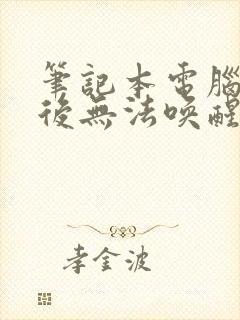 筆記本電腦
後無法喚醒
李金波